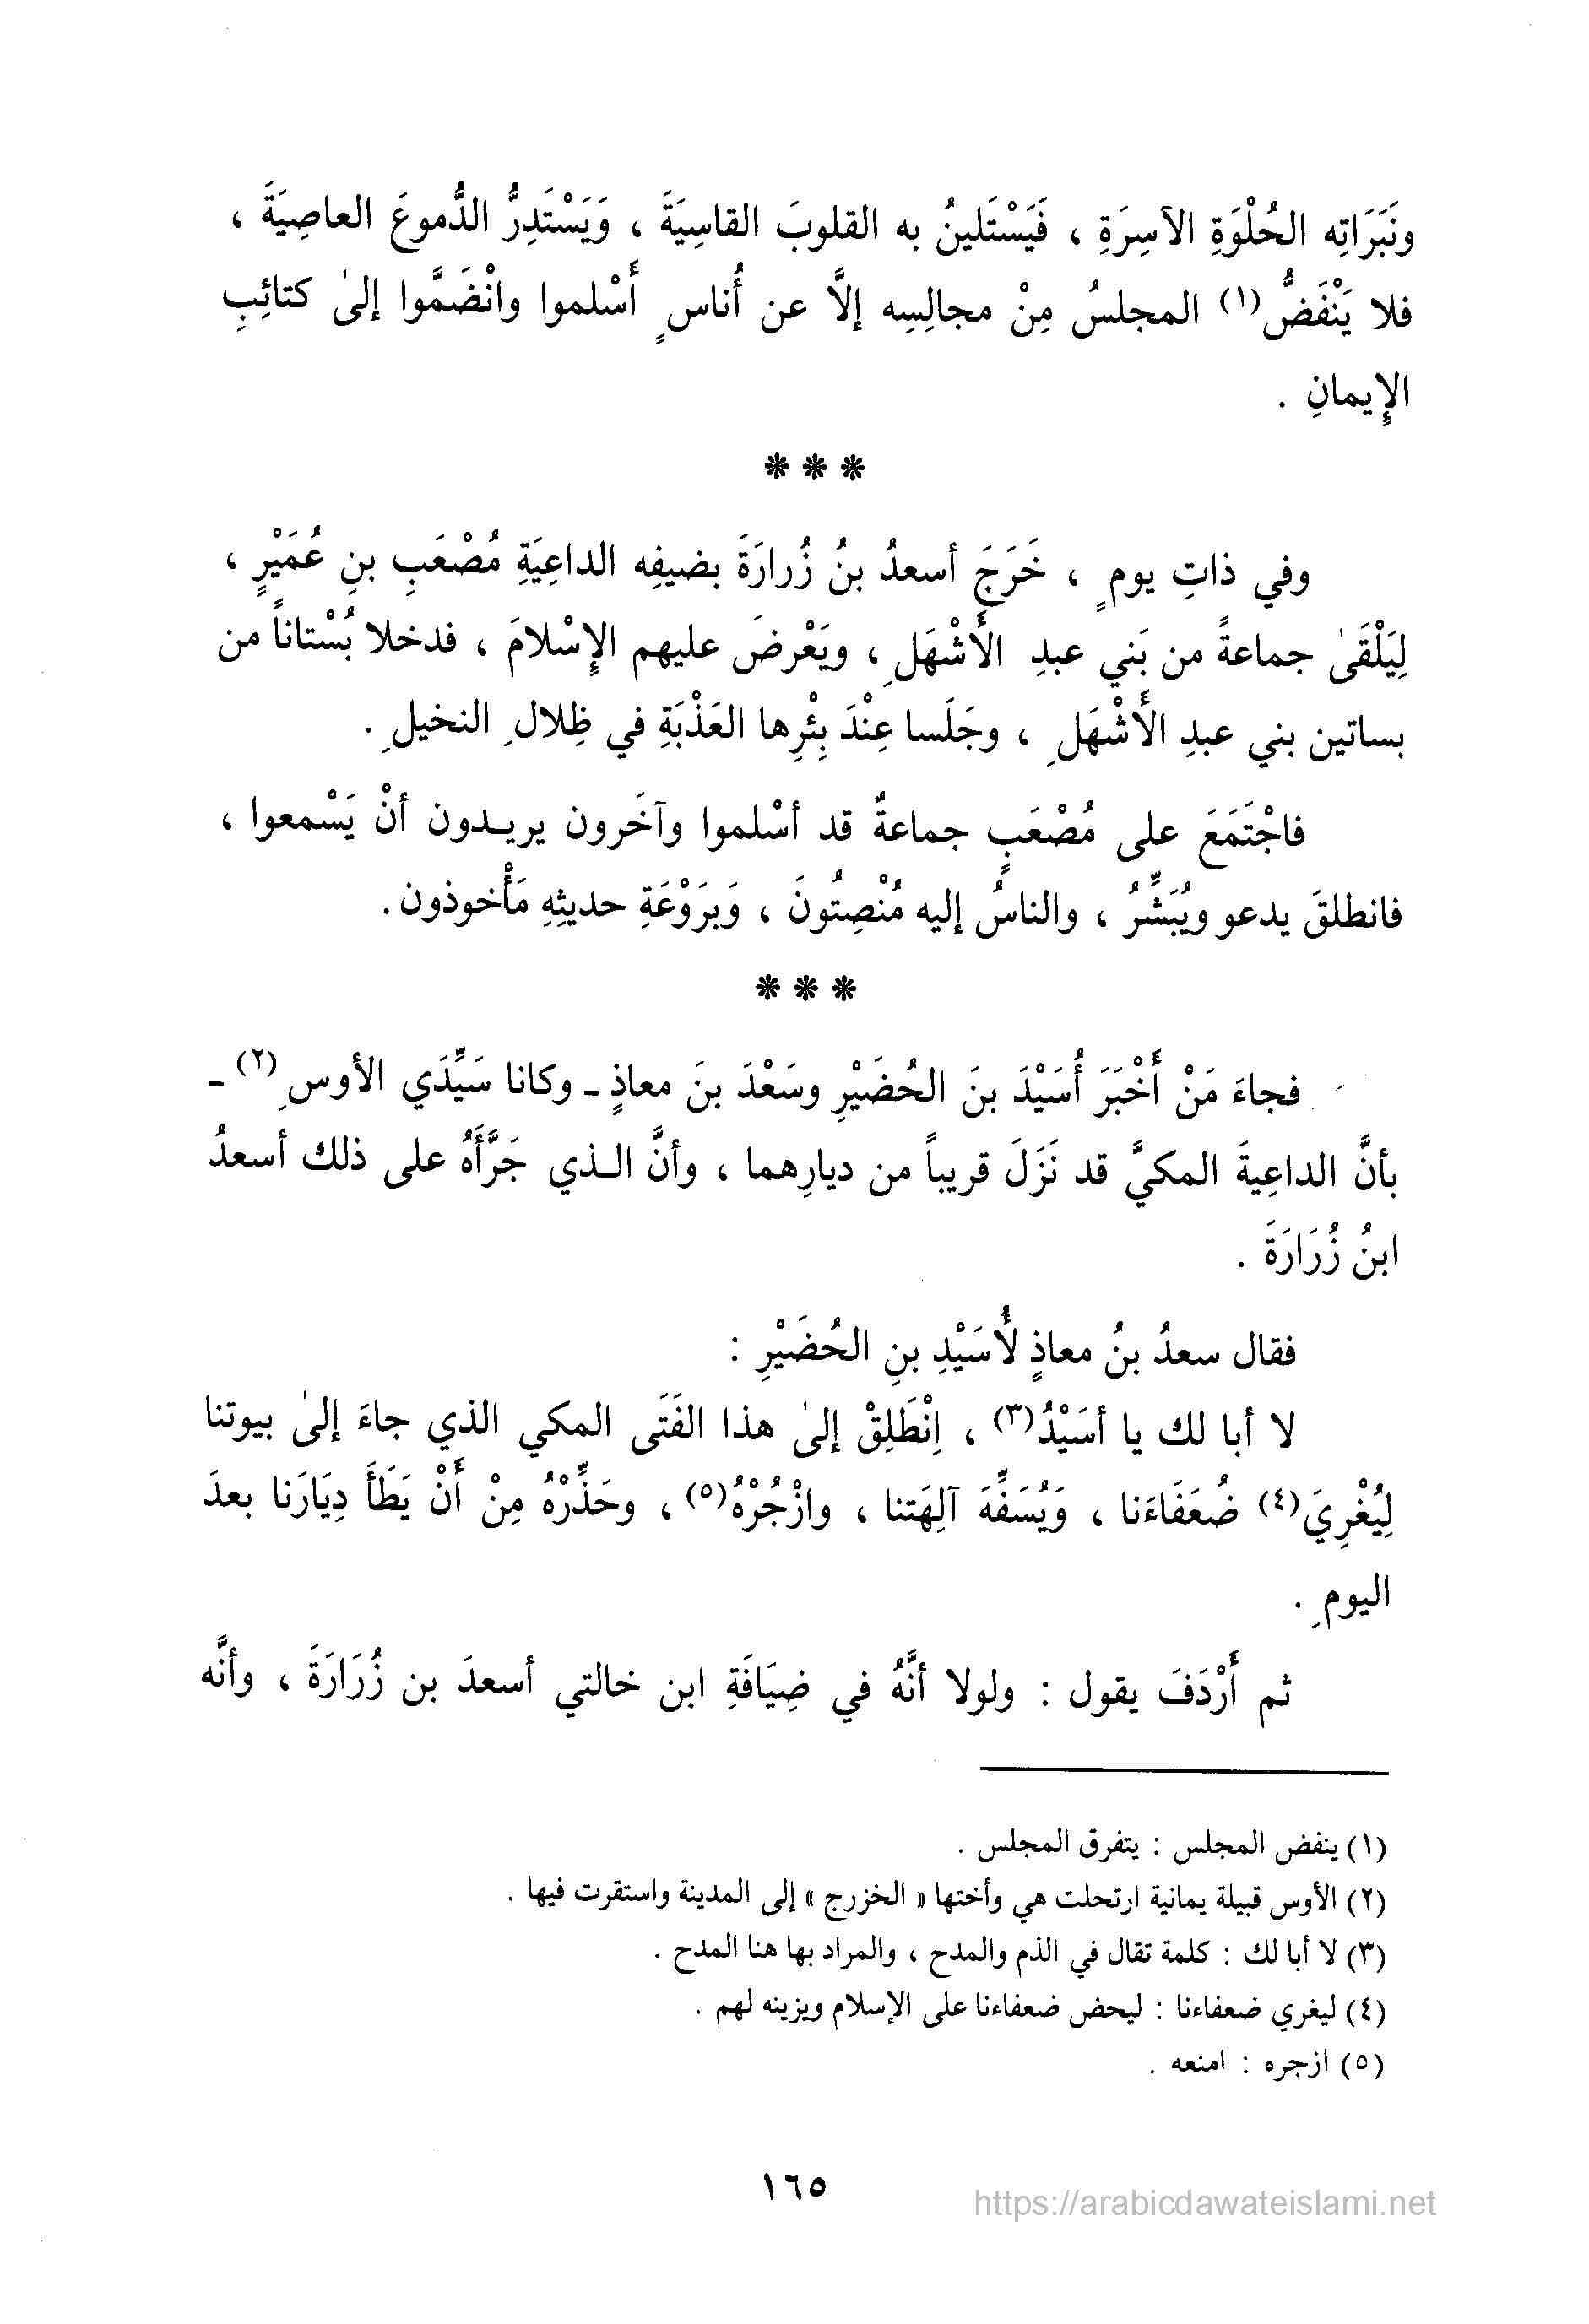 ونَبَرَاتِه الحُلْوَةِ الآسِرَةِ ، فَيَسْتَلينُ به القلوبَ القاسِيَةَ ، وَيَسْتَدِرُّ الدُّموعَ العاصِيَةَ ،
فلا يَنْفَضُّ(١) المجلسُ مِنْ مجالِسِه إلاَّ عن أُناسٍ أَسْلموا وانْضَمَّوا إلىٰ كتائِبِ
الإِيمانِ .
* * *
وفي ذاتِ يومٍ ، خَرَجَ أسعدُ بنُ زُرارَةَ بضيفِه الداعِيَةِ مُصْعَبِ بنِ عُمَيْرٍ ،
لِيَلْقَىٰ جماعةً من بَني عبدِ الأَشْهَلِ ، ويَعْرضَ عليهم الإِسْلامَ ، فدخلا بُسْتاناً من
بساتين بني عبدِ الأَشْهَلِ ، وجَلَسا عِنْدَ بِئْرِها العَذْبَةِ في ظِلالِ النخيلِ .
فاجْتَمَعَ على مُصْعَبٍ جماعةٌ قد أسْلموا وآخَرون يريـدون أنْ يَسْمعوا ،
فانطلقَ يدعو ويُبَشِّرُ ، والناسُ إليه مُنْصِتُونَ ، وَبرَوْعَةِ حديثِهِ مَأْخوذون .
* * *
فجاءَ مَنْ أَخْبَرَ أُسَيْدَ بنَ الحُضَيْرِ وسَعْدَ بنَ معاذٍ ـ وكانا سَيِّدَي الأوسِ (٢) ـ
بأنَّ الداعِيةَ المكيَّ قد نَزَلَ قريباً من ديارِهما ، وأنَّ الـذي جَرَّأَهُ على ذلك أسعدُ
ابنُ زُرَارَةَ .
فقال سعدُ بنُ معاذٍ لأُسَيْدِ بنِ الحُضَيْرِ :
لا أبا لك يا أسَيْدُ(٣) ، اِنْطَلِقْ إلىٰ هذا الفَتَى المكي الذي جاءَ إلىٰ بيوتنا
لِيُغْرِيَ(٤) ضُعَفَاءَنا ، وَيُسَفِّهَ آلِهَتنا ، وازْجُرْهُ(٥) ، وحَذِّرْهُ مِنْ أَنْ يَطَأَ دِيَارَنا بعدَ
اليومِ .
ثم أَرْدَفَ يقول : ولولا أنَّهُ في ضِيَافَةِ ابن خالتي أسعدَ بن زُرَارَةَ ، وأنَّه
(١) ينفض المجلس : يتفرق المجلس .
(٢) الأوس قبيلة يمانية ارتحلت هي وأختها « الخزرج » إلى المدينة واستقرت فيها .
(٣) لا أبا لك : كلمة تقال في الذم والمدح ، والمراد بها هنا المدح .
(٤) ليغري ضعفاءنا : ليحض ضعفاءنا على الإسلام ويزينه لهم .
(٥) ازجره : امنعه .
١٦٥
https://arabicdawateislami.net